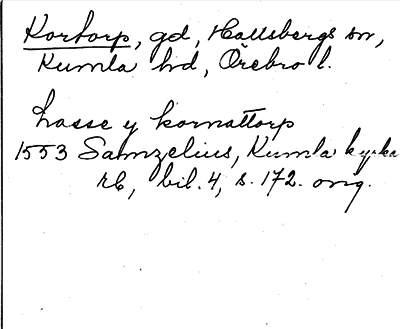 Kortorp, gd, Hallsbergs sn,
Kumla hd, Örebro l.
Lasse y kornattorp
1553 Samzelius, Kumla kyrka
rb, bil. 4, s. 172. orig.